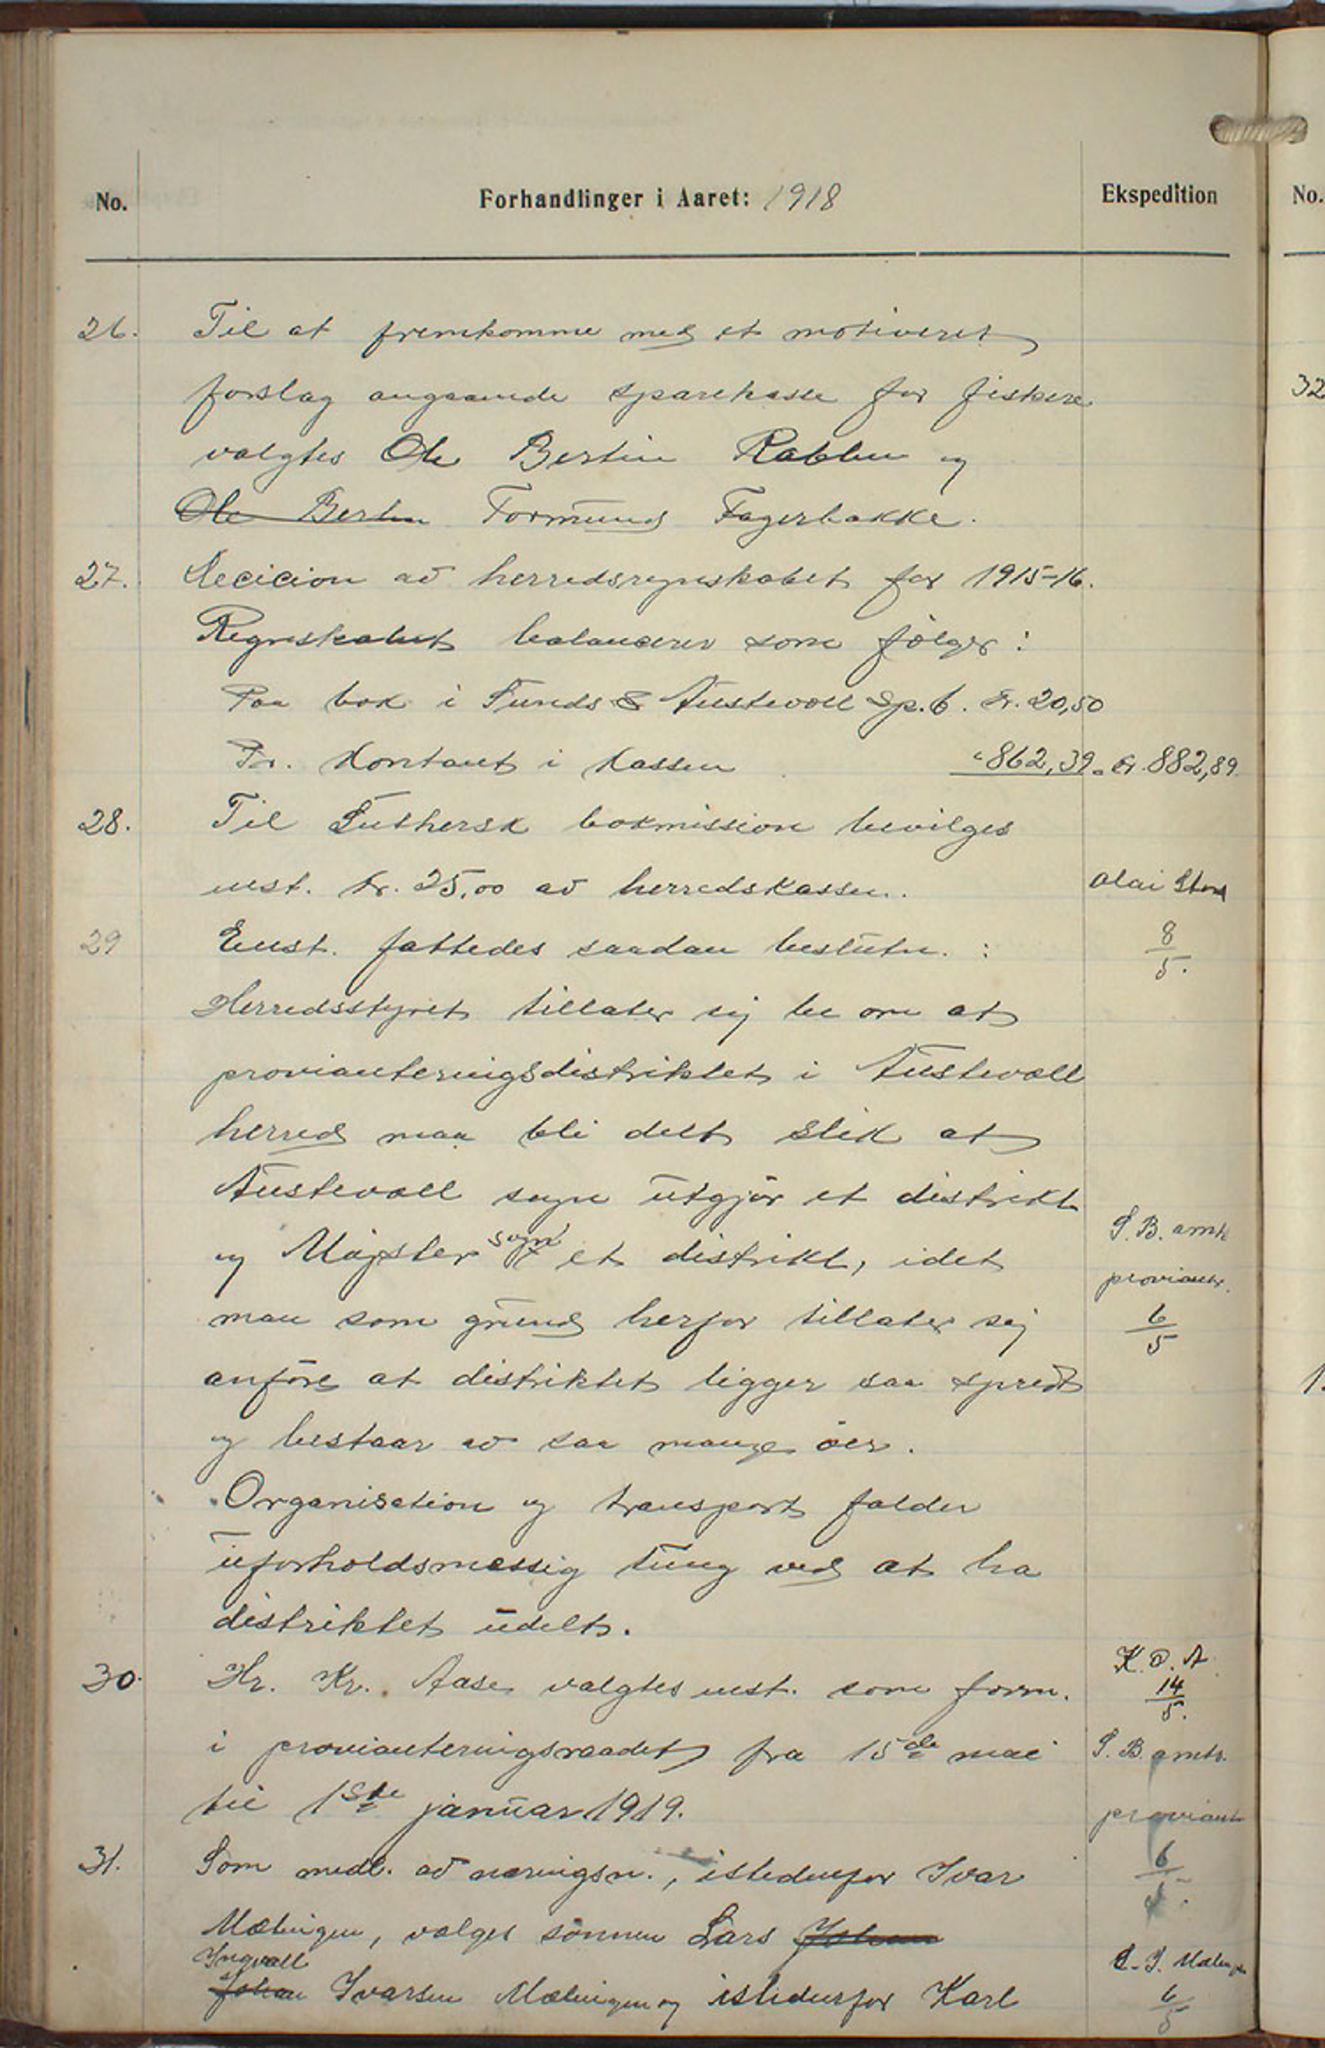 No.
Forhandlinger i Aaret: 1918
Ekspedition
No.
26. Til at fremkomme med et motiveret
forslag angaaende sparekasse for fiskere
32
valgtes Ole Bertin Rabben og
Ole Bertin Formund Fagerbakke.
27. Decicion av herredsregnskabet for 1915-16.
Regnskabet balancerer som følger:
Paa bok i Sunds & Austevoll Sp.b. Kr. 20,50
Pr. Kontant i Kassen "862,39 = Kr. 882,89
28. Til Luthersk bokmission bevilges
enst. kr. 25,00 av herredskassen.
Olai Stord
8/5.
29 Enst. fattedes saadan beslutn.:
Herredsstyret tillater sig be om at
provianteringsdistriktet i Austevoll
herred maa bli delt slik at
Austevoll sogn utgjør et distrikt
og Møgster sogn et distrikt, idet
S. B. amts
proviantr.
6/5
man som grund herfor tillater sig
anføre at distriktet ligger saa spredt
1.
og bestaar av saa mange øer.
Organisation og transport falder
uforholdsmæssig tung ved at ha
distriktet udelt.
30. Hr. Kr. Aase valgtes enst. som form.
K. O. A.
14/5.
i provianteringsraadet fra 15de mai
S. B. amts.
til 1ste januar 1919.
proviant
6/5.
31. Som medl. av næringsn., istedenfor Ivar
Mælingen, valges sønnen Lars Johan
Ingvall
Johan Ivarsen Mælingen og istedenfor Karl
L. I. Mælingen
6/5